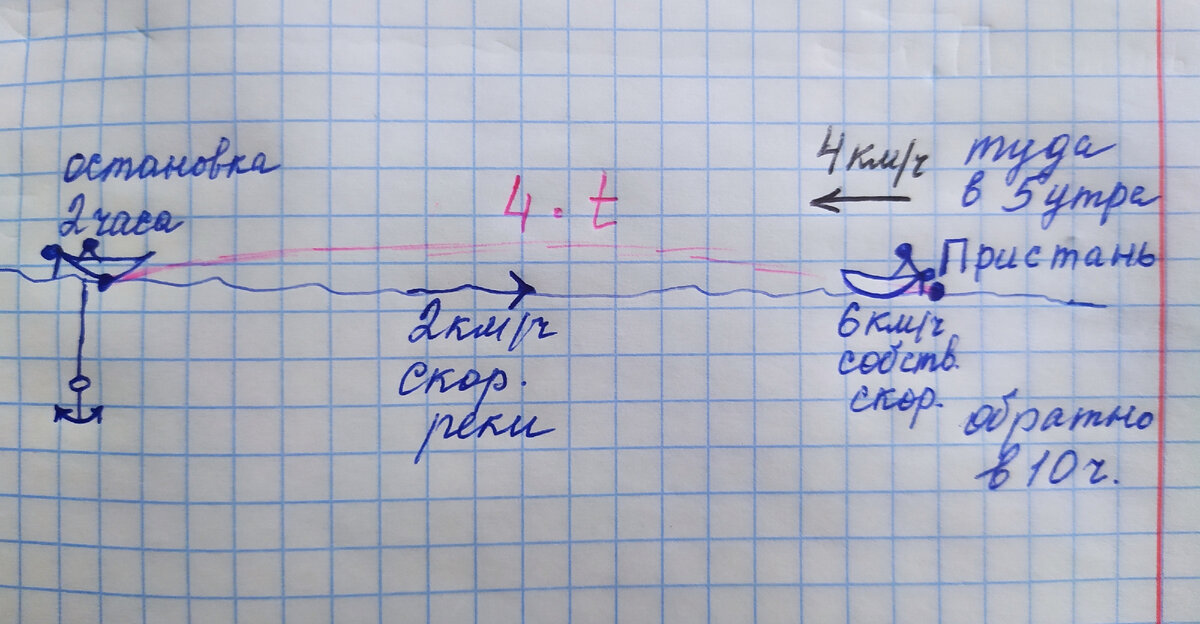 остановка
2 часа
4 · t
4 км/ч
туда
в 5 утра
Пристань
2 км/ч
скор.
реки
6 км/ч
собств.
скор.
обратно
в 10 ч.